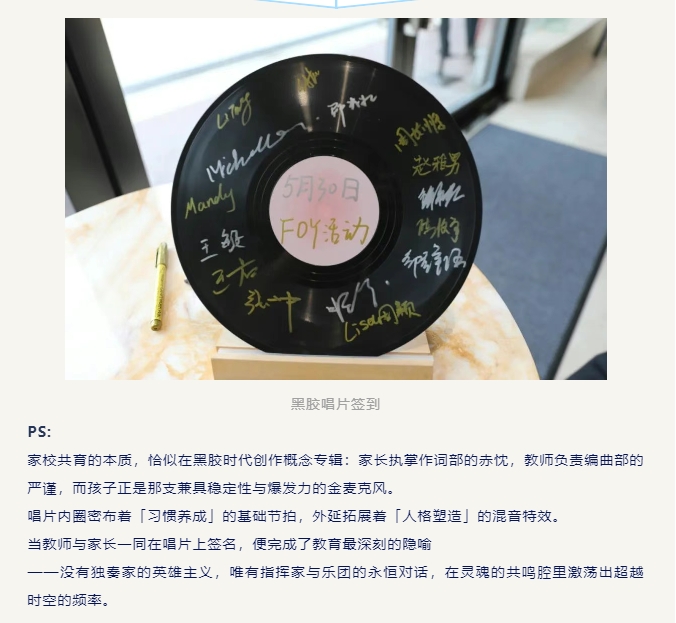 LiTing
Michelle
Mandy
王毅
张
赵雅男
Lisa周颖
5月30日
FDY活动
黑胶唱片签到
PS:
家校共育的本质，恰似在黑胶时代创作概念专辑：家长执掌作词部的赤忱，教师负责编曲部的
严谨，而孩子正是那支兼具稳定性与爆发力的金麦克风。
唱片内圈密布着「习惯养成」的基础节拍，外延拓展着「人格塑造」的混音特效。
当教师与家长一同在唱片上签名，便完成了教育最深刻的隐喻
——没有独奏家的英雄主义，唯有指挥家与乐团的永恒对话，在灵魂的共鸣腔里激荡出超越
时空的频率。